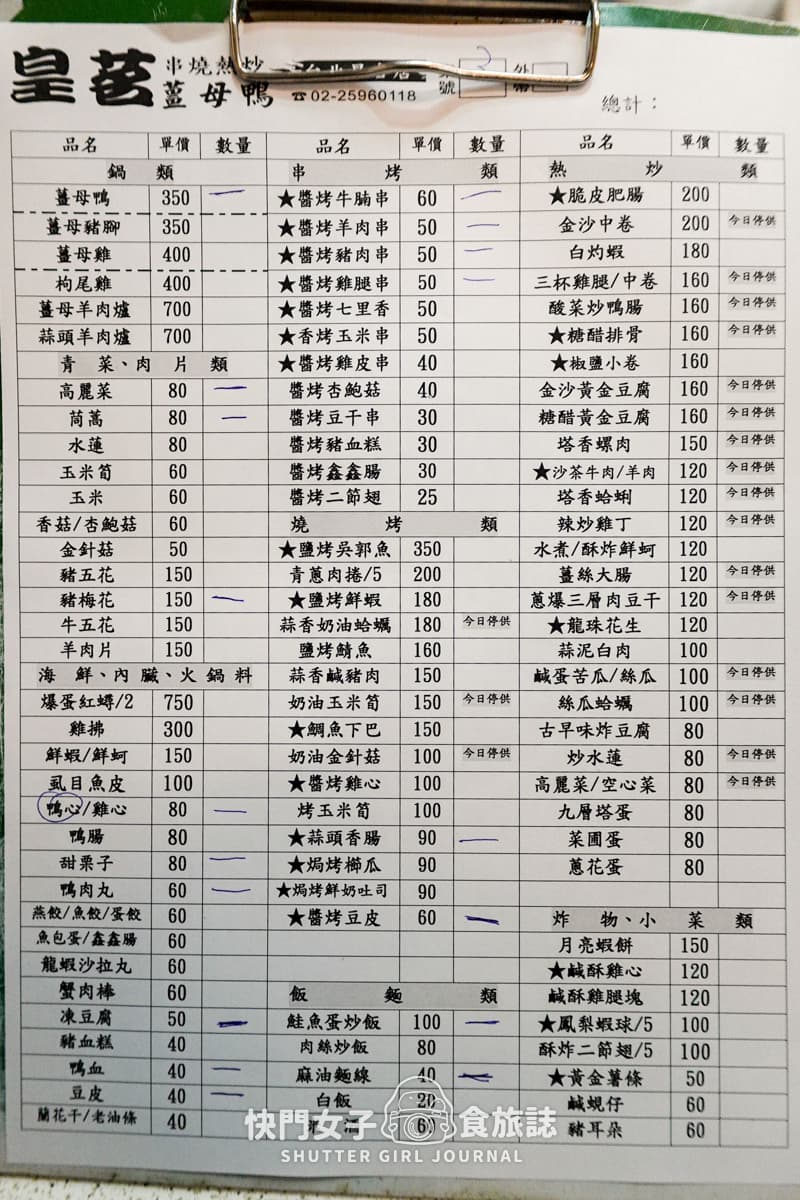 皇茗 串燒熱炒
薑母鴨 ☎02-25960118
號 外
總計：
品名 單價 數量
鍋 類
薑母鴨 350 一
薑母豬腳 350
薑母雞 400
枸尾雞 400
薑母羊肉爐 700
蒜頭羊肉爐 700
青 菜、肉 片 類
高麗菜 80 一
茼蒿 80 一
水蓮 80
玉米筍 60
玉米 60
香菇/杏鮑菇 60
金針菇 50
豬五花 150
豬梅花 150 一
牛五花 150
羊肉片 150
海 鮮、內 臟、火 鍋 料
爆蛋紅蟳/2 750
雞拂 300
鮮蝦/鮮蚵 150
虱目魚皮 100
鴨心/雞心 80 一
鴨腸 80
甜栗子 80 一
鴨肉丸 60 一
燕餃/魚餃/蛋餃 60
魚包蛋/鑫鑫腸 60
龍蝦沙拉丸 60
蟹肉棒 60
凍豆腐 50 一
豬血糕 40
鴨血 40 一
豆皮 40 一
蘭花干/老油條 40
品名 單價 數量
串 烤 類
★醬烤牛腩串 60 一
★醬烤羊肉串 50 一
★醬烤豬肉串 50 一
★醬烤雞腿串 50 一
★醬烤七里香 50
★香烤玉米串 50
★醬烤雞皮串 40
醬烤杏鮑菇 40
醬烤豆干串 30
醬烤豬血糕 30
醬烤鑫鑫腸 30
醬烤二節翅 25
燒 烤 類
★鹽烤吳郭魚 350
青蔥肉捲/5 200
★鹽烤鮮蝦 180
蒜香奶油蛤蠣 180 今日停供
鹽烤鯖魚 160
蒜香鹹豬肉 150
奶油玉米筍 150 今日停供
★鯛魚下巴 150
奶油金針菇 100 今日停供
★醬烤雞心 100
烤玉米筍 100
★蒜頭香腸 90 一
★焗烤櫛瓜 90
★焗烤鮮奶吐司 90
★醬烤豆皮 60 一
飯 麵 類
鮭魚蛋炒飯 100 一
肉絲炒飯 80
麻油麵線 40 一
白飯 20
酒 60
品名 單價 數量
熱 炒 類
★脆皮肥腸 200
金沙中卷 200 今日停供
白灼蝦 180
三杯雞腿/中卷 160 今日停供
酸菜炒鴨腸 160 今日停供
★糖醋排骨 160 今日停供
★椒鹽小卷 160
金沙黃金豆腐 160 今日停供
糖醋黃金豆腐 160 今日停供
塔香螺肉 150 今日停供
★沙茶牛肉/羊肉 120 今日停供
塔香蛤蜊 120 今日停供
辣炒雞丁 120 今日停供
水煮/酥炸鮮蚵 120
薑絲大腸 120 今日停供
蔥爆三層肉豆干 120 今日停供
★龍珠花生 120
蒜泥白肉 100
鹹蛋苦瓜/絲瓜 100 今日停供
絲瓜蛤蠣 100 今日停供
古早味炸豆腐 80
炒水蓮 80 今日停供
高麗菜/空心菜 80 今日停供
九層塔蛋 80
菜圃蛋 80
蔥花蛋 80
炸 物、小 菜 類
月亮蝦餅 150
★鹹酥雞心 120
鹹酥雞腿塊 120
★鳳梨蝦球/5 100
酥炸二節翅/5 100
★黃金薯條 50
鹹蜆仔 60
豬耳朵 60
快門女子 食旅誌
SHUTTER GIRL JOURNAL